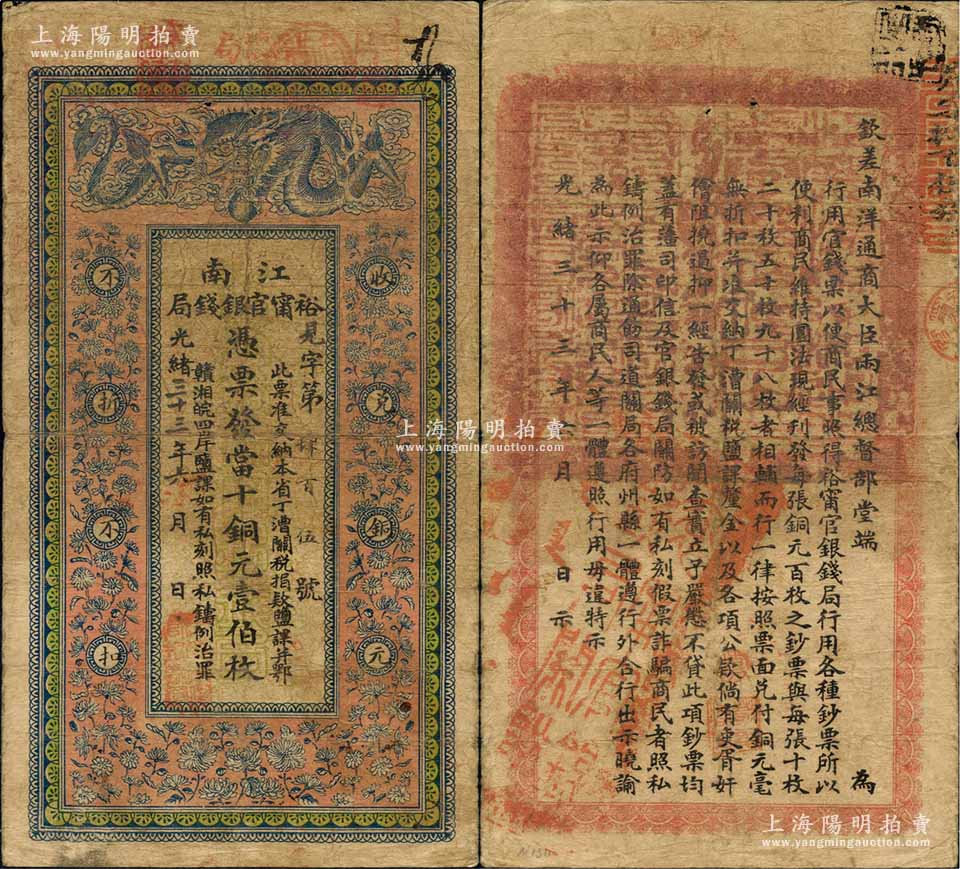 上海陽明拍賣
www.yangmingauction.com
江南
裕甯官銀錢局
見字第肆百伍號
此票准交納本省丁漕關稅捐款鹽課并鄂
憑票發當十銅元壹伯枚
贛湘皖四岸鹽課如有私刻照私鑄例治罪
光緒三十三年六月日
收兌銅元
不折不扣
欽差南洋通商大臣兩江總督部堂端
為
行用官錢票以便商民事照得裕甯官銀錢局行用各種鈔票所以
便利商民維持圜法現經刊發每張銅元百枚之鈔票與每張十枚
二十枚五十枚九十八枚者相輔而行一律按照票面兌付銅元毫
無折扣並准交納丁漕關稅鹽課釐金以及各項公款倘有吏胥奸
儈阻撓過抑一經告發或被訪聞查實立予嚴懲不貸此項鈔票均
蓋有藩司印信及官銀錢局關防如有私刻假票詐騙商民者照私
鑄例治罪除通飭司道關局各府州縣一體遵行外合行出示曉諭
為此示仰各屬商民人等一體遵照行用毋違特示
光緒三十三年六月日示
上海陽明拍賣
www.yangmingauction.com
上海陽明拍賣
www.yangmingauction.com